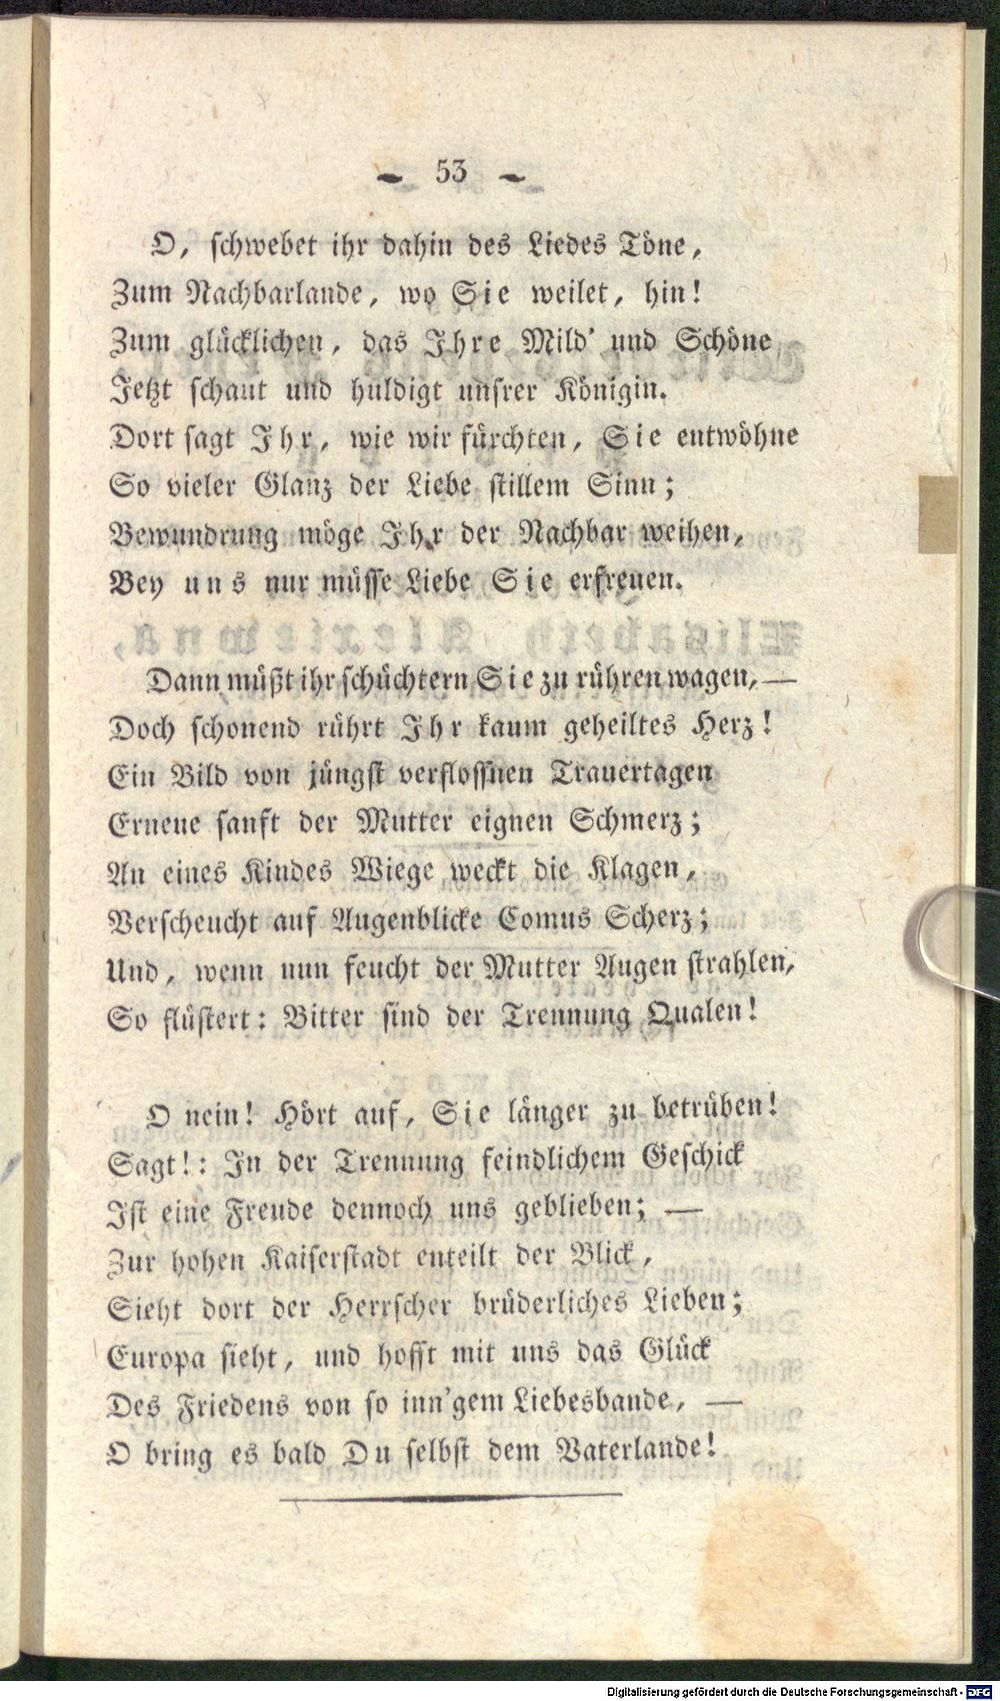 — 53 —
O, schwebet ihr dahin des Liedes Töne,
Zum Nachbarlande, wo Sie weilet, hin!
Zum glücklichen, das Ihre Mild' und Schöne
Jetzt schaut und huldigt unsrer Königin.
Dort sagt Ihr, wie wir fürchten, Sie entwöhne
So vieler Glanz der Liebe stillem Sinn;
Bewundrung möge Ihr der Nachbar weihen,
Bey uns nur müsse Liebe Sie erfreuen.
Dann müßt ihr schüchtern Sie zu rühren wagen, —
Doch schonend rührt Ihr kaum geheiltes Herz!
Ein Bild von jüngst verflossnen Trauertagen
Erneue sanft der Mutter eignen Schmerz;
An eines Kindes Wiege weckt die Klagen,
Verscheucht auf Augenblicke Comus Scherz;
Und, wenn nun feucht der Mutter Augen strahlen,
So flüstert: Bitter sind der Trennung Qualen!
O nein! Hört auf, Sie länger zu betrüben!
Sagt!: In der Trennung feindlichem Geschick
Ist eine Freude dennoch uns geblieben; —
Zur hohen Kaiserstadt enteilt der Blick,
Sieht dort der Herrscher brüderliches Lieben;
Europa sieht, und hofft mit uns das Glück
Des Friedens von so inn'gem Liebesbande, —
O bring es bald Du selbst dem Vaterlande!
Digitalisierung gefördert durch die Deutsche Forschungsgemeinschaft - DFG